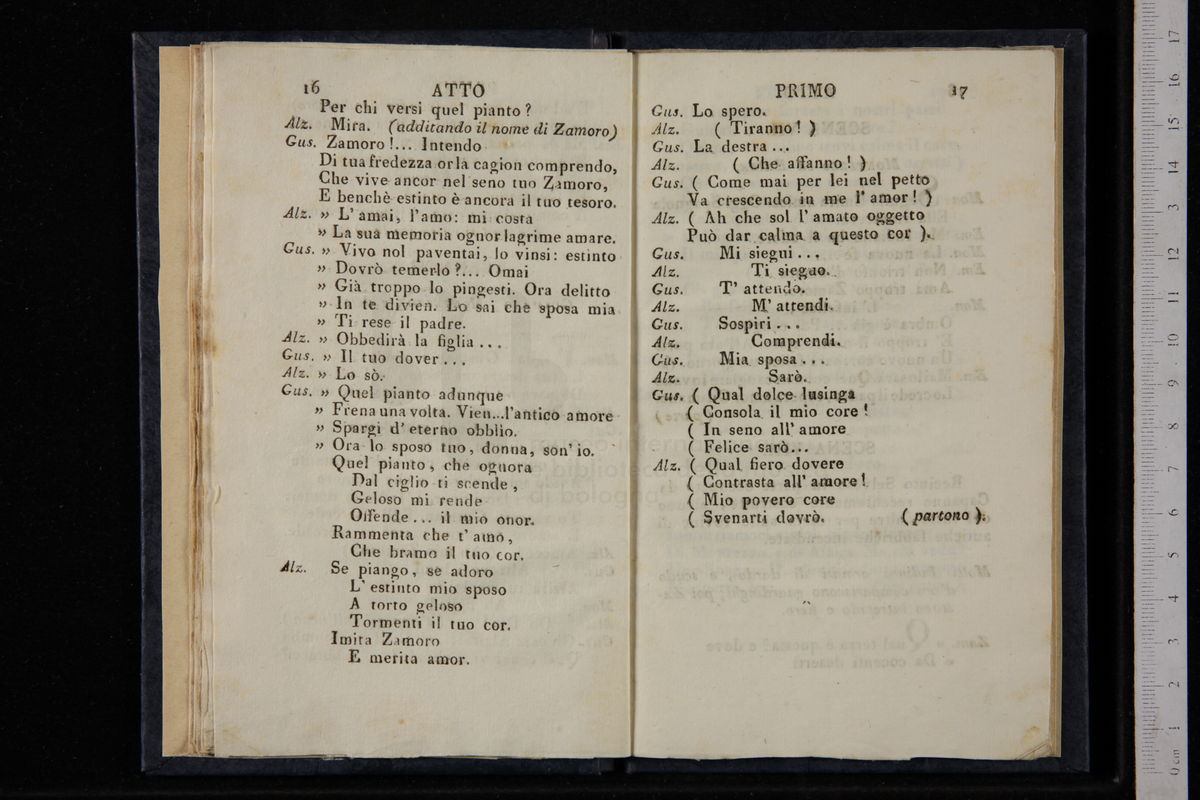 16 ATTO
Per chi versi quel pianto ?
Alz. Mira. (additando il nome di Zamoro)
Gus. Zamoro !... Intendo
Di tua fredezza or la cagion comprendo,
Che vive ancor nel seno tuo Zamoro,
E benchè estinto è ancora il tuo tesoro.
Alz. » L' amai, l'amo: mi costa
» La sua memoria ognor lagrime amare.
Gus. » Vivo nol paventai, lo vinsi: estinto
» Dovrò temerlo ?... Omai
» Già troppo lo pingesti. Ora delitto
» In te divien. Lo sai che sposa mia
» Ti rese il padre.
Alz. » Obbedirà la figlia ...
Gus. » Il tuo dover ...
Alz. » Lo sò.
Gus. » Quel pianto adunque
» Frena una volta. Vien...l'antico amore
» Spargi d' eterno obblìo.
» Ora lo sposo tuo, donna, son' io.
Quel pianto, che ognora
Dal ciglio ti scende,
Geloso mi rende
Offende ... il mio onor.
Rammenta che t' amo,
Che bramo il tuo cor.
Alz. Se piango, se adoro
L' estinto mio sposo
A torto geloso
Tormenti il tuo cor.
Imita Zamoro
E merita amor.
PRIMO 17
Gus. Lo spero.
Alz. ( Tiranno ! )
Gus. La destra ...
Alz. ( Che affanno ! )
Gus. ( Come mai per lei nel petto
Va crescendo in me l' amor ! )
Alz. ( Ah che sol l' amato oggetto
Può dar calma a questo cor ).
Gus. Mi siegui ...
Alz. Ti sieguo.
Gus. T' attendo.
Alz. M' attendi.
Gus. Sospiri ...
Alz. Comprendi.
Gus. Mia sposa ...
Alz. Sarò.
Gus. ( Qual dolce lusinga
( Consola il mio core !
( In seno all' amore
( Felice sarò...
Alz. ( Qual fiero dovere
( Contrasta all' amore !
( Mio povero core
( Svenarti dovrò. ( partono ).